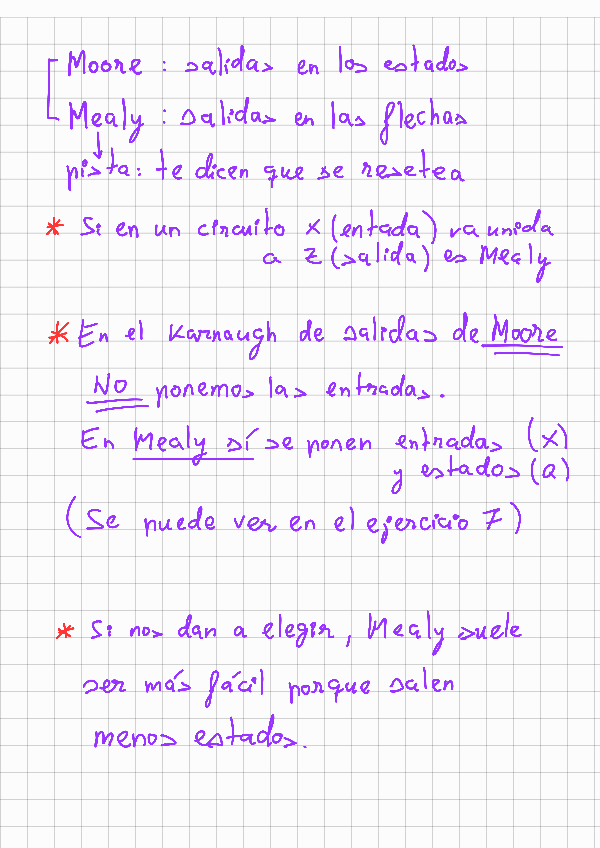 Moore : salidas en los estados
Mealy : salidas en las flechas
pista: te dicen que se resetea
* Si en un circuito x (entada) va unida
a z (salida) es Mealy
* En el Karnaugh de salidas de Moore
NO ponemos las entradas.
En Mealy sí se ponen entradas (x)
y estados (Q)
(Se puede ver en el ejercicio 7)
* Si nos dan a elegir, Mealy suele
ser más fácil porque salen
menos estados.